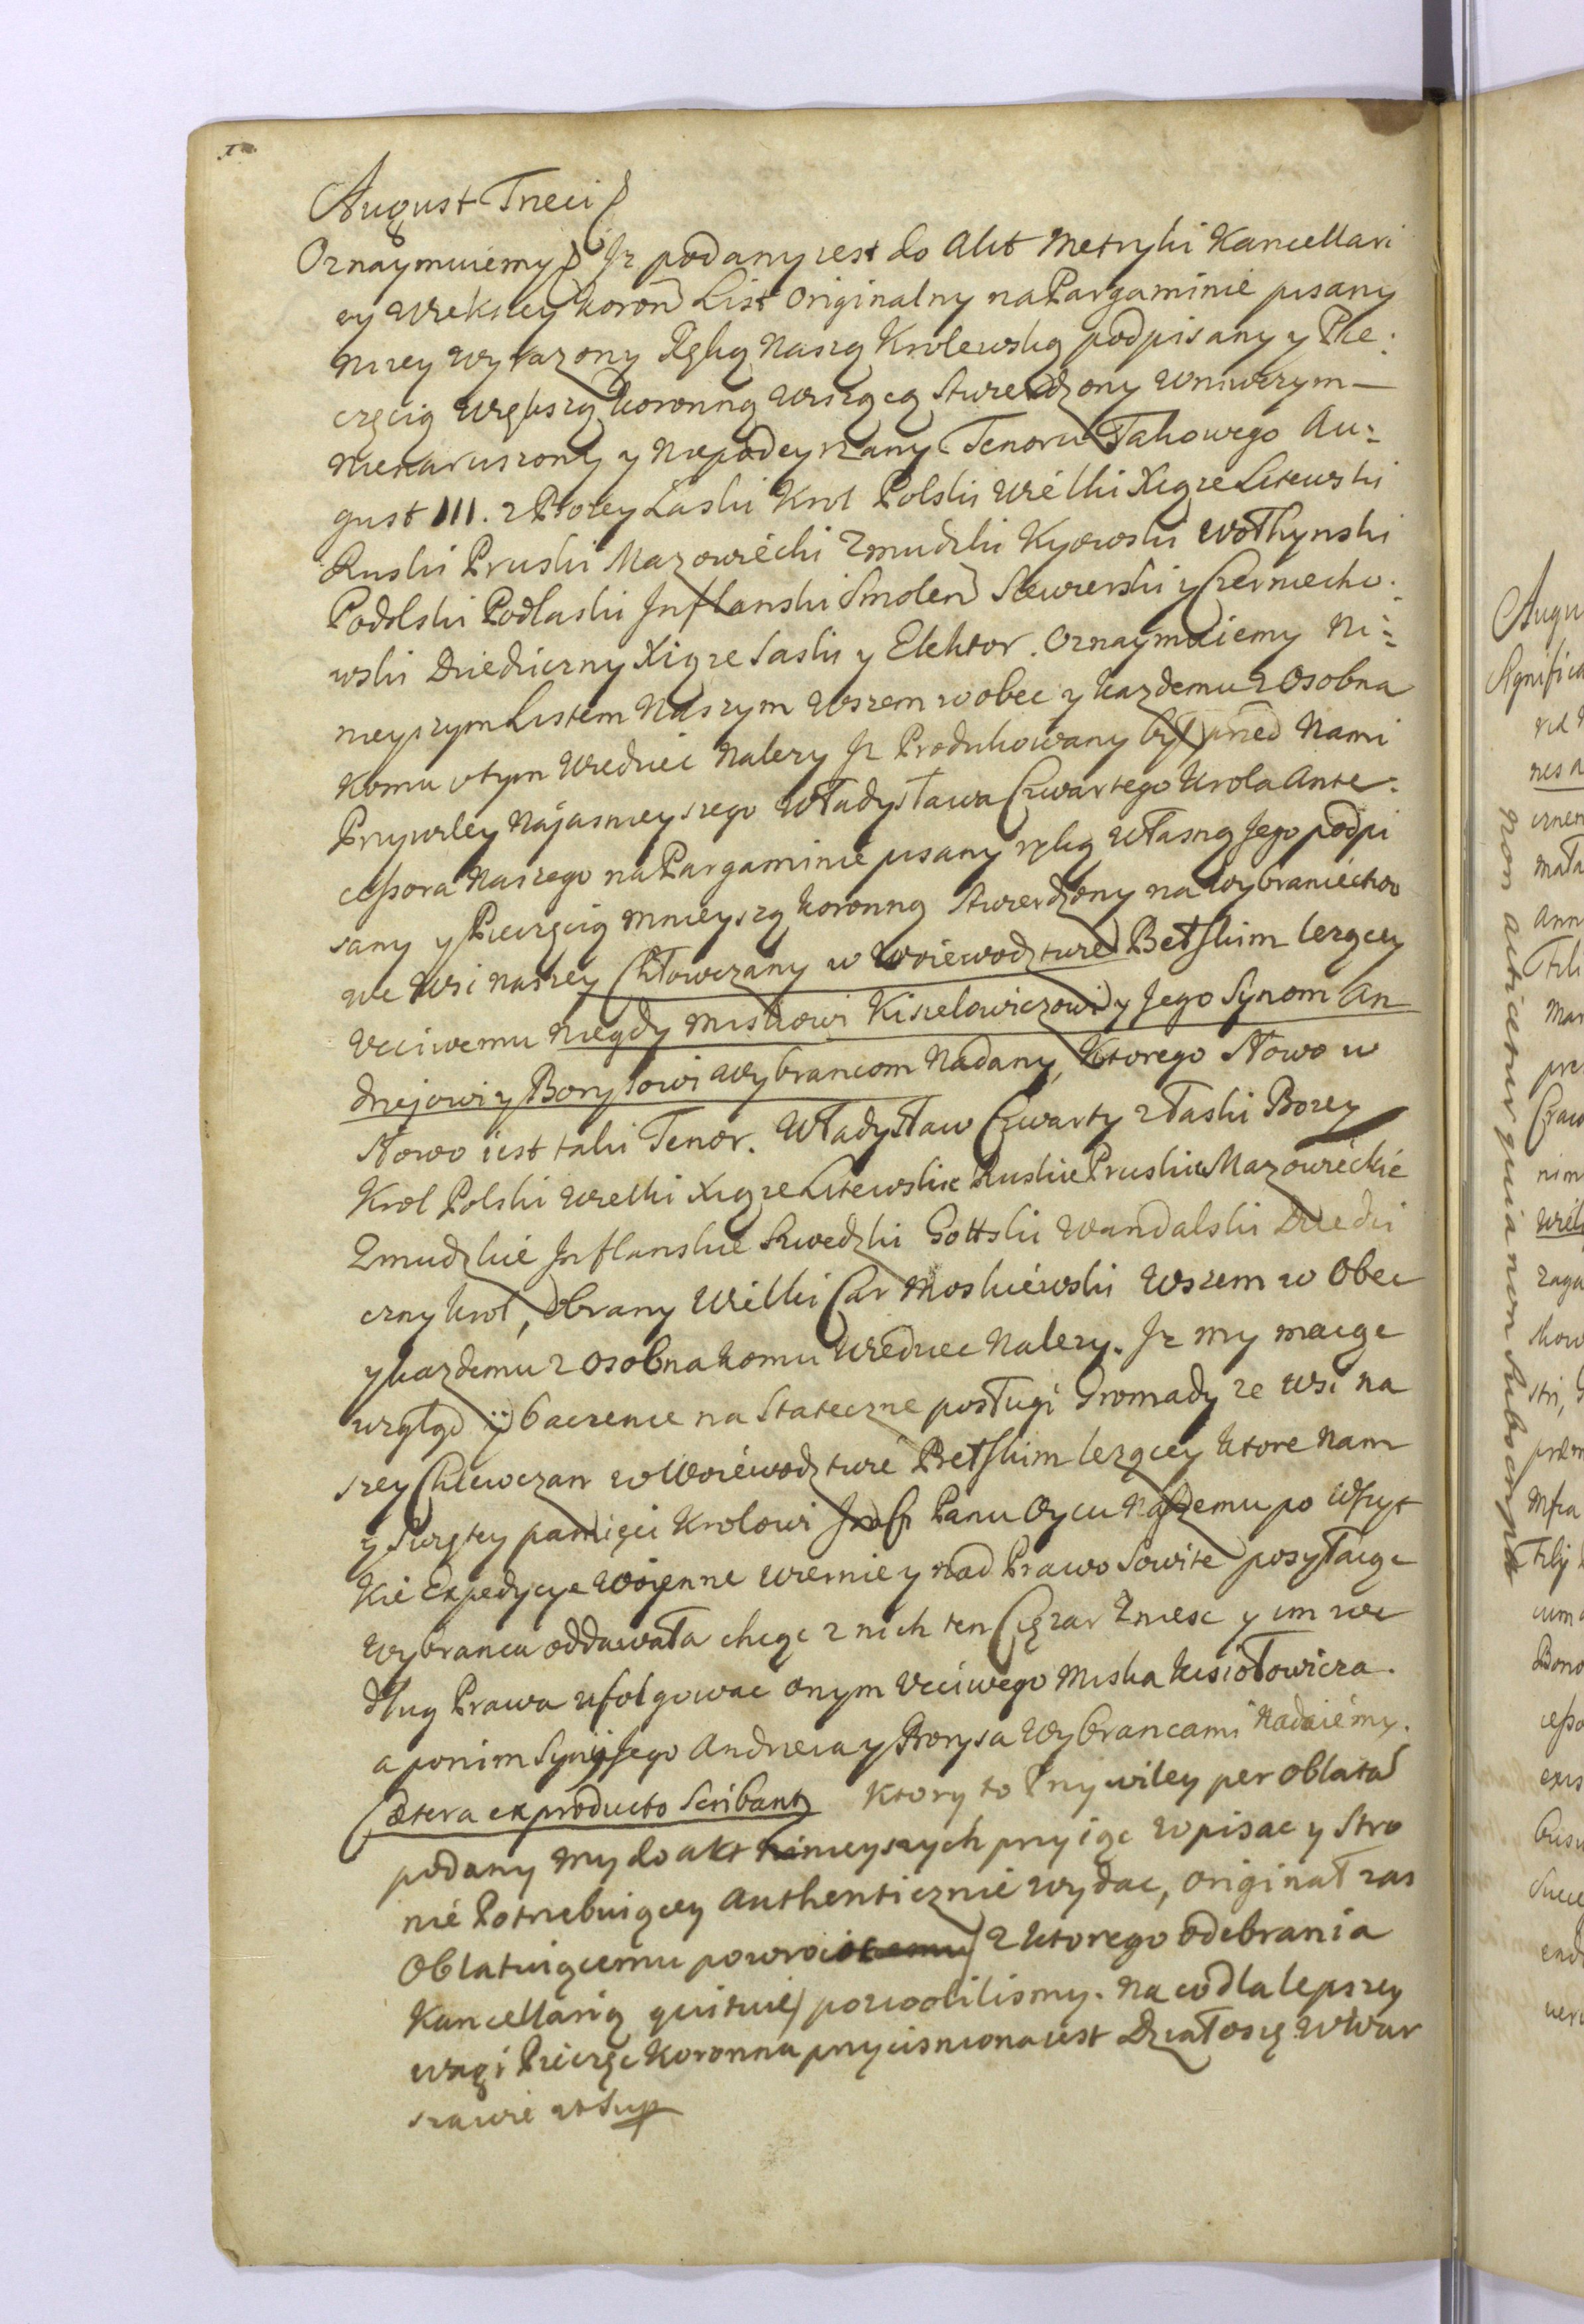 August Trzeci
Oznaymuiemy Jz podany iest do Akt Metryki Kancellari
ey Wiekszey koron List Originalny na Pargaminie pisany
nizey wyrazony Ręką Naszą Krolewską podpisany y Pie:
częcią Większą koronną wiszącą stwierdzony wniwczym
nienaruszony y niepodeyrzany Tenoru Takowego Au:
gust III. z Bozey Łaski Krol Polski Wielki Xiąze Litewski
Ruski Pruski Mazowiecki Zmudzki Kyowski Wołhynski
Podolski Podlaski Jnflanski Smolen Siewierski y Czerniecho:
wski Dziedziczny Xiąze Saski y Elektor. Oznaymuiemy Ni:
nieyszym Listem Naszym wszem wobec y kazdemu z Osobna
komu otym Wiedziec Nalezy Jz Produkowany był przed Nami
Przywiley Nájasnieyszego Władysława Czwartego krola Ante:
cessora Naszego na Pargaminie pisany ręką własną Jego podpi
sany y Pieczęcią mnieyszą koronną stwierdzony na wybraniectwo
we Wsi naszey Chłowczany w Woiewodztwie Bełskim lezącey
Uciwemu niegdy Miskowi Kisielowiczowi y Jego Synom An
drzejowi y Borysowi Wybrancom Nadany, ktorego Słowo w
Słowo iest taki Tenor. Władysław Czwarty z łaski Bozey
Krol Polski Wielki Xiąze Litewskie Ruskie Pruskie Mazowieckie
Zmudzkie Jnflanskie Szwedzki Gottski Wandalski Dziedzi
czny krol, Obrany Wielki Car Moskiewski Wszem w Obec
y kazdemu z osobna komu Wiedziec Nalezy. Jz my maiąc
wzgląd y baczenie na Stateczne posługi Gromady ze wsi na
szey Chlewczan w Woiewodztwie Bełskim lezącey ktore Nam
y Swiętey pamięci Krolowi Panu Oycu Naszemu po wszyt
kie Expedycye Woienne wiernie y nad Prawo Sowite posyłaiąc
Wybranca oddawała chcąc z nich ten Ciężar Zniesc y im we
dług Prawa ufolgowac onym Uciwego Miska kisiołowicza.
a ponim Syny Jego Andrzeia y Borysa Wybrancami Nadaiemy.
Cætera ex producto Scribantz Ktory to Przywiley per Oblatā
podany my do akt Ninieyszych przyiąc Wpisac y Stro
nie Potrzebuiącey Authenticznie wydac, originał zas
Oblatuiącemu powroci z ktorego odebrania
Kancellarią quituie pozwolilismy. Na co dla lepszey
wagi Pieczęc koronna przycisniona iest Działo się w War
szawie ut Sup